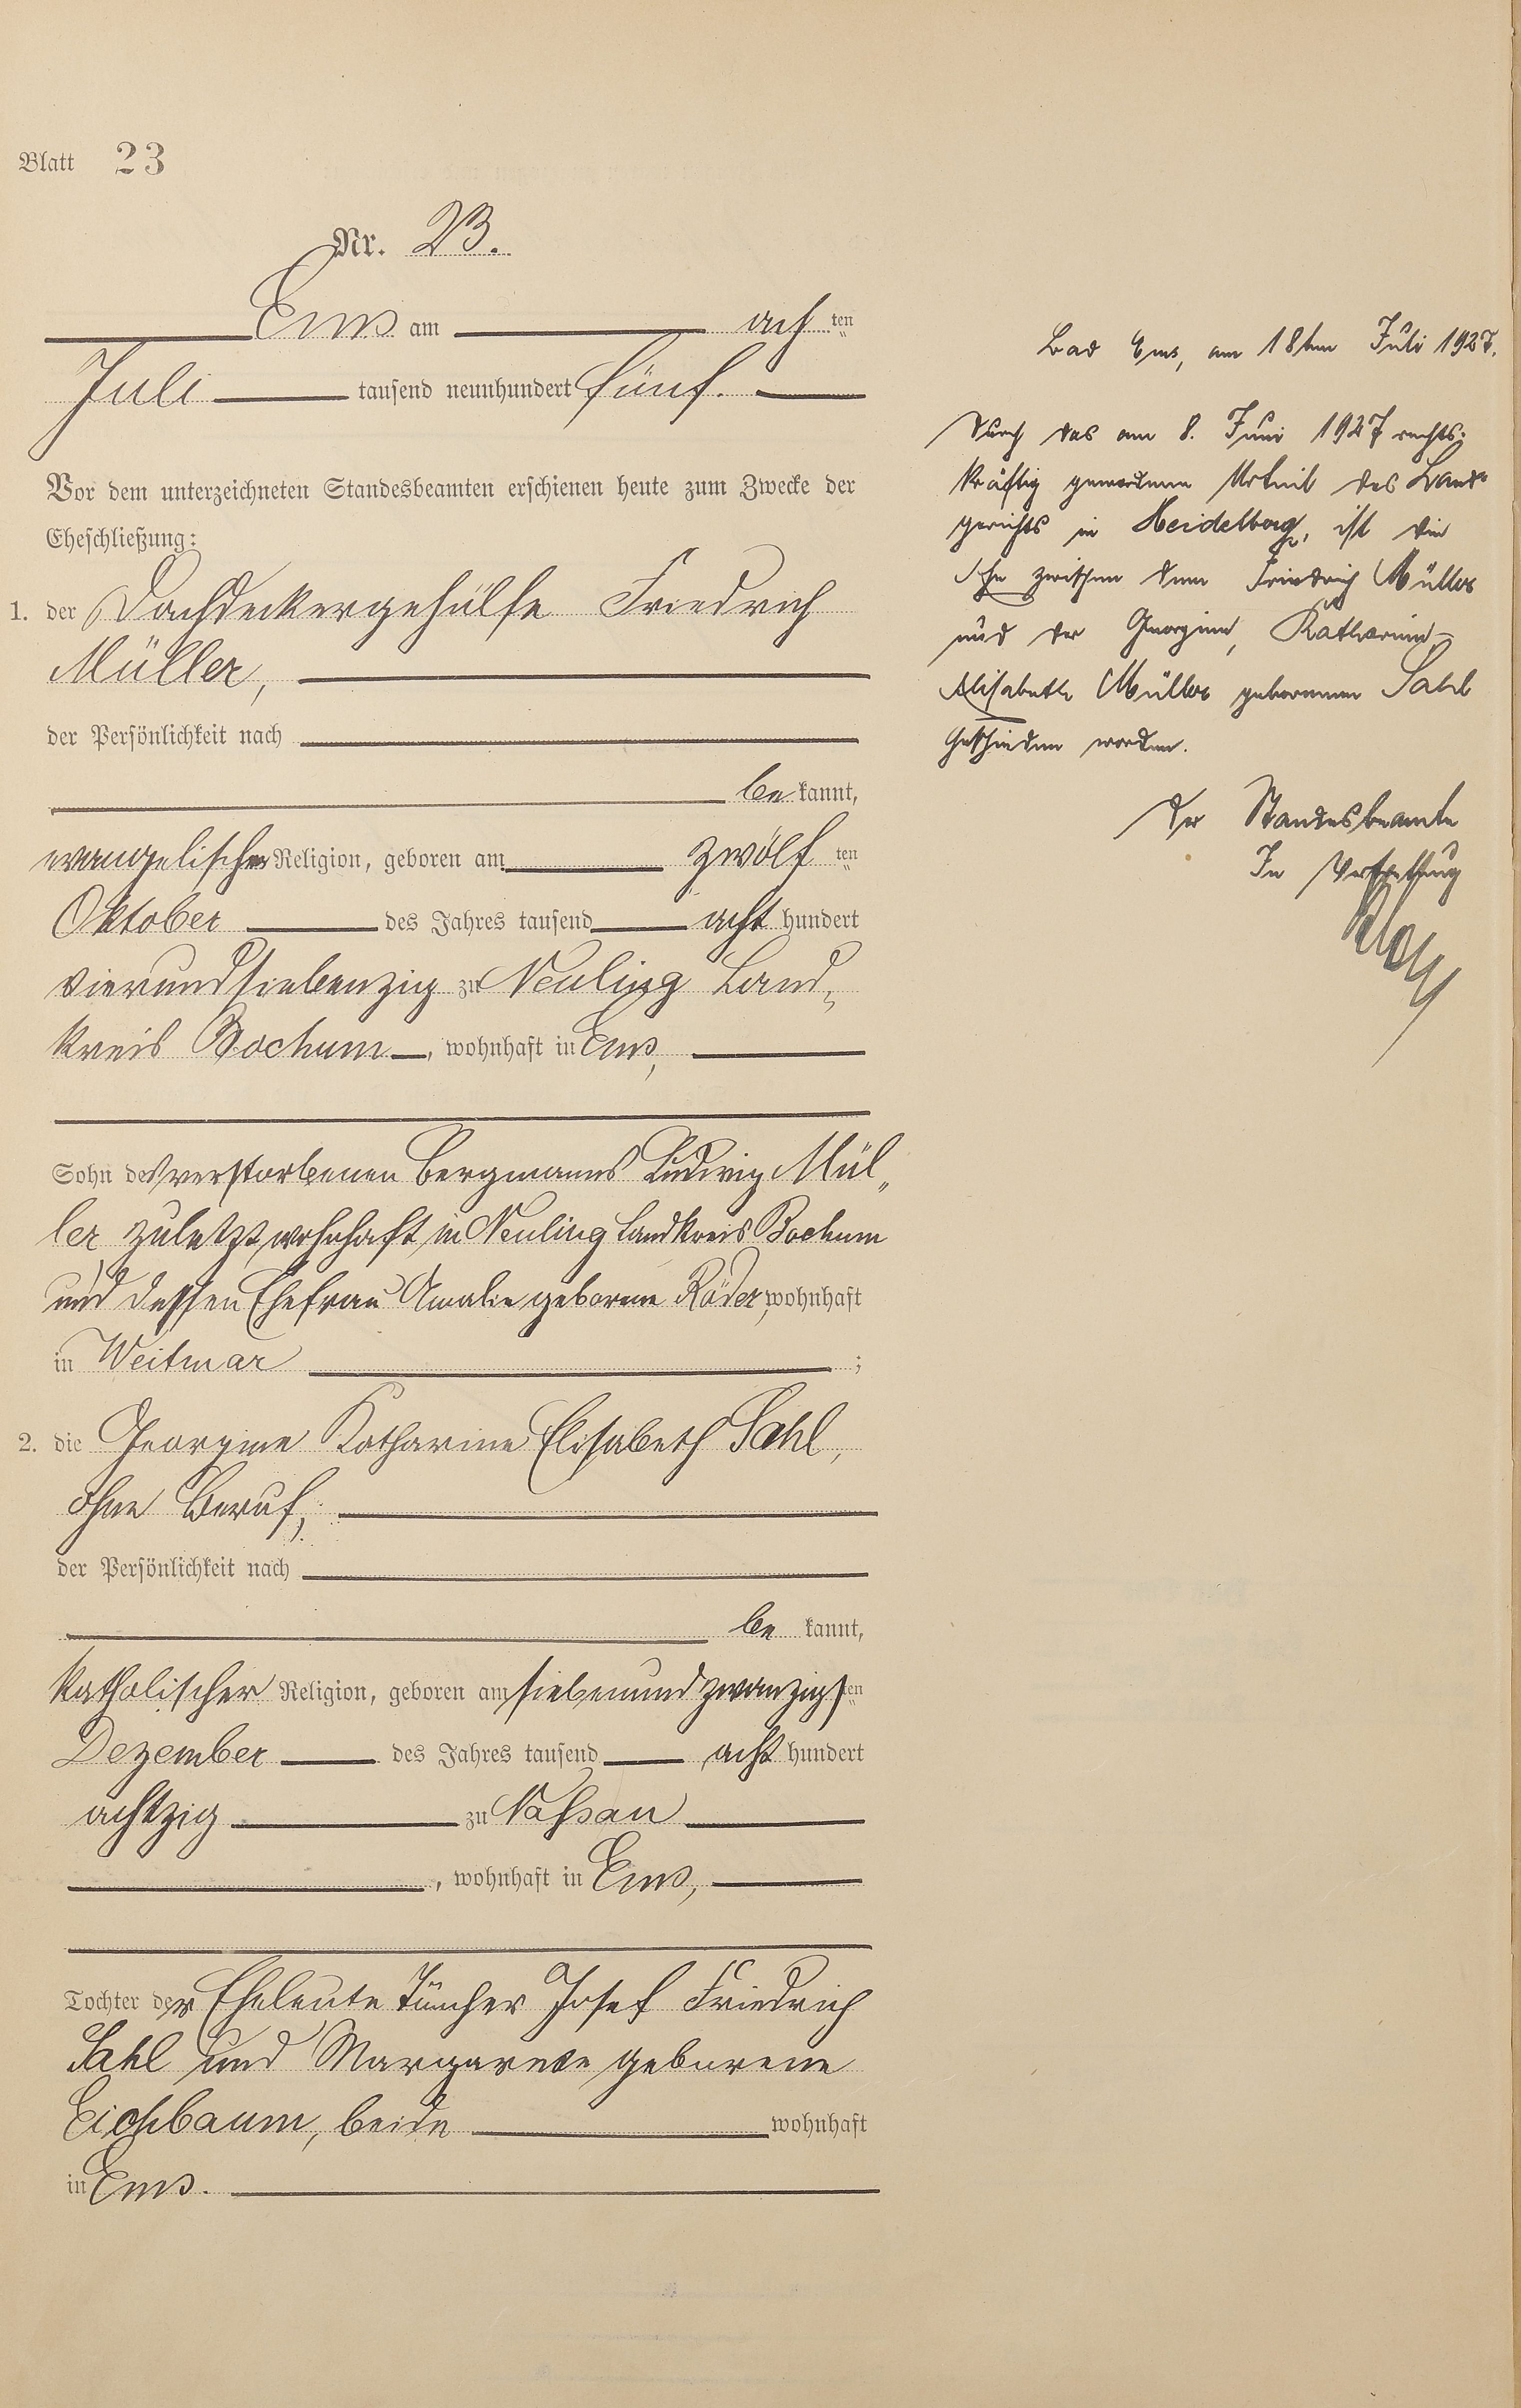 Blatt 23
Nr. 23.
Ems am achten
Juli tausend neunhundert fünf.
Vor dem unterzeichneten Standesbeamten erschienen heute zum Zwecke der
Eheschließung:
1. der Dachdeckergehülfe Friedrich
Müller,
der Persönlichkeit nach
bekannt,
evangelischer Religion, geboren am zwölften
Oktober des Jahres tausend acht hundert
vierundsiebenzig zu Neuling Land„
kreis Bochum, wohnhaft in Ems,
Sohn des verstorbenen Bergmanns Ludwig Mül„
ler zuletzt wohnhaft in Neuling Landkreis Bochum
und dessen Ehefrau Amalie geborene Röder, wohnhaft
in Weitmar ;
2. die Georgine Katharine Elisabeth Sahl,
ohne Beruf,
der Persönlichkeit nach
bekannt,
katholischer Religion, geboren am siebenundzwanzigsten
Dezember des Jahres tausend acht hundert
achtzig zu Nassau
, wohnhaft in Ems,
Tochter der Eheleute Tüncher Josef Friedrich
Sahl und Margarete geborene
Eichbaum, beide wohnhaft
in Ems.
Bad Ems, am 18ten Juli 1927.
Durch das am 8. Juni 1927 rechts-
kräftig gewordene Urteil des Land-
gerichts in Heidelberg, ist die
Ehe zwischen dem Friedrich Müller
und der Georgine, Katharine-
Elisabeth Müller geborenen Sahl
geschieden worden.
Der Standesbeamte
In Vertretung